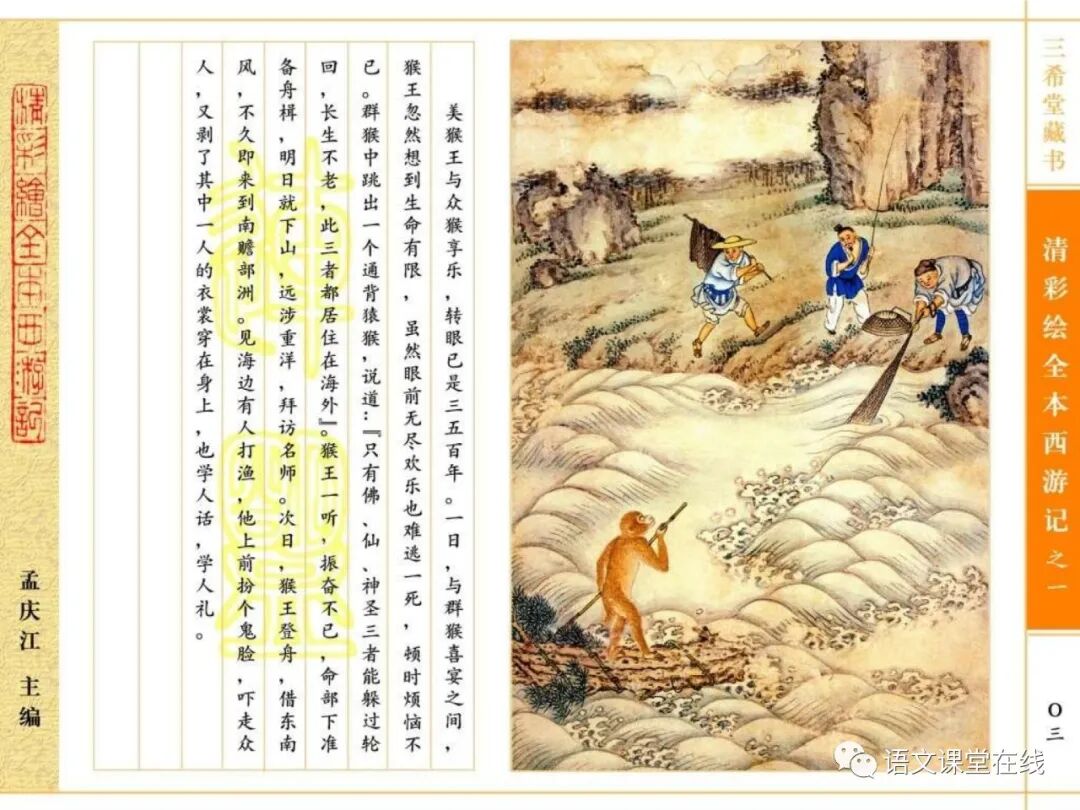 三希堂藏书
清彩绘全本西游记之一
〇三
美猴王与众猴享乐，转眼已是三五百年。一日，与群猴喜宴之间，
猴王忽然想到生命有限，虽然眼前无尽欢乐也难逃一死，顿时烦恼不
已。群猴中跳出一个通背猿猴，说道：『只有佛、仙、神圣三者能躲过轮
回，长生不老，此三者都居住在海外』。猴王一听，振奋不已，命部下准
备舟楫，明日就下山，远涉重洋，拜访名师。次日，猴王登舟，借东南
风，不久即来到南赡部洲。见海边有人打渔，他上前扮个鬼脸，吓走众
人，又剥了其中一人的衣裳穿在身上，也学人话，学人礼。
清彩繪全本西游記
孟庆江 主编
语文课堂在线